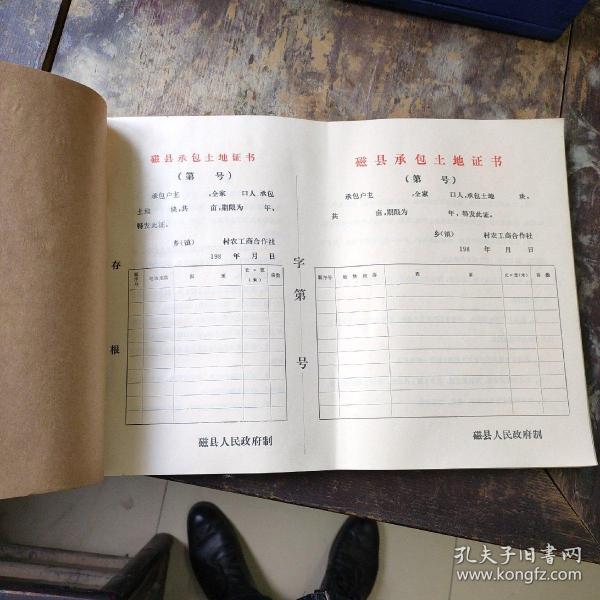 磁县承包土地证书
(第 号)
承包户主 ,全家 口人,承包
土地 块,共 亩,期限为 年,
特发此证。
乡(镇) 村农工商合作社
198 年 月 日
存
根
亩数
磁县人民政府制
字
第
号
磁县承包土地证书
(第 号)
承包户主 ,全家 口人,承包土地 块,
共 亩,期限为 年,特发此证。
乡(镇) 村农工商合作社
198 年 月 日
四 至
长×宽(米)
亩数
磁县人民政府制
孔夫子旧书网
www.kongfz.com